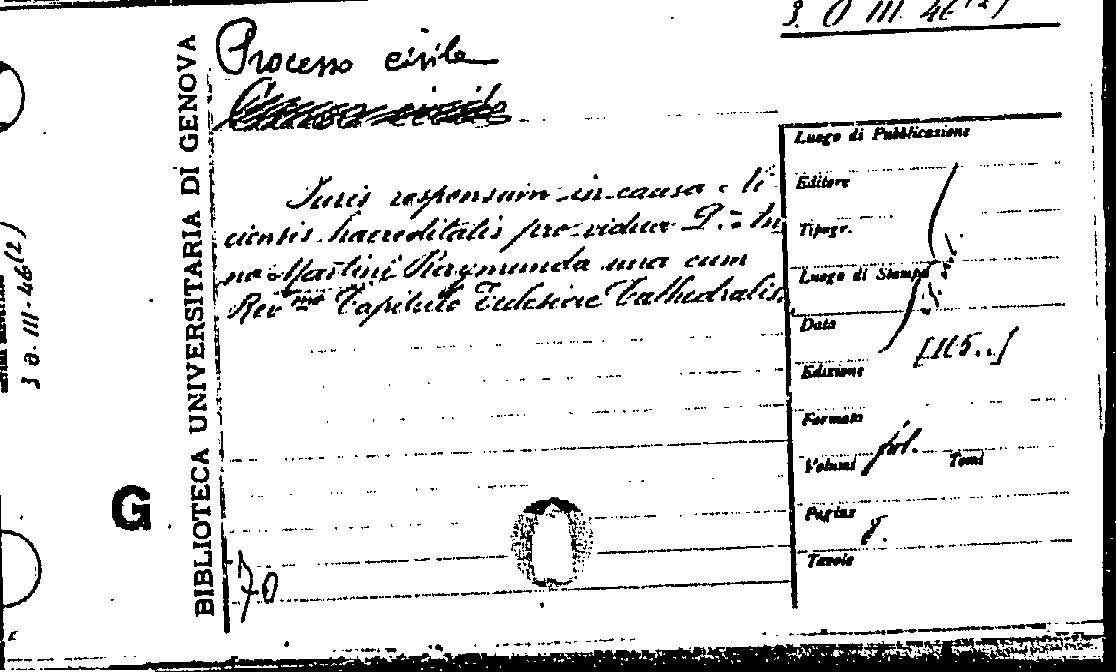 3. O III. 46 (2)
Processo civile
Causa civile
Juris responsum in causa - ti
ciensis haereditatis pro vidua D. - An
na - Martini Raymunda una cum
Rev.mo Capitulo Ecclesiae Cathedralis.
70
BIBLIOTECA UNIVERSITARIA DI GENOVA
G
3 O. III. 46 (2)
Luogo di Pubblicazione
Editore
Tipogr.
Luogo di Stampa
Data
Edizione
Formato
Volumi fol. Tomi
Pagine 8.
Tavole